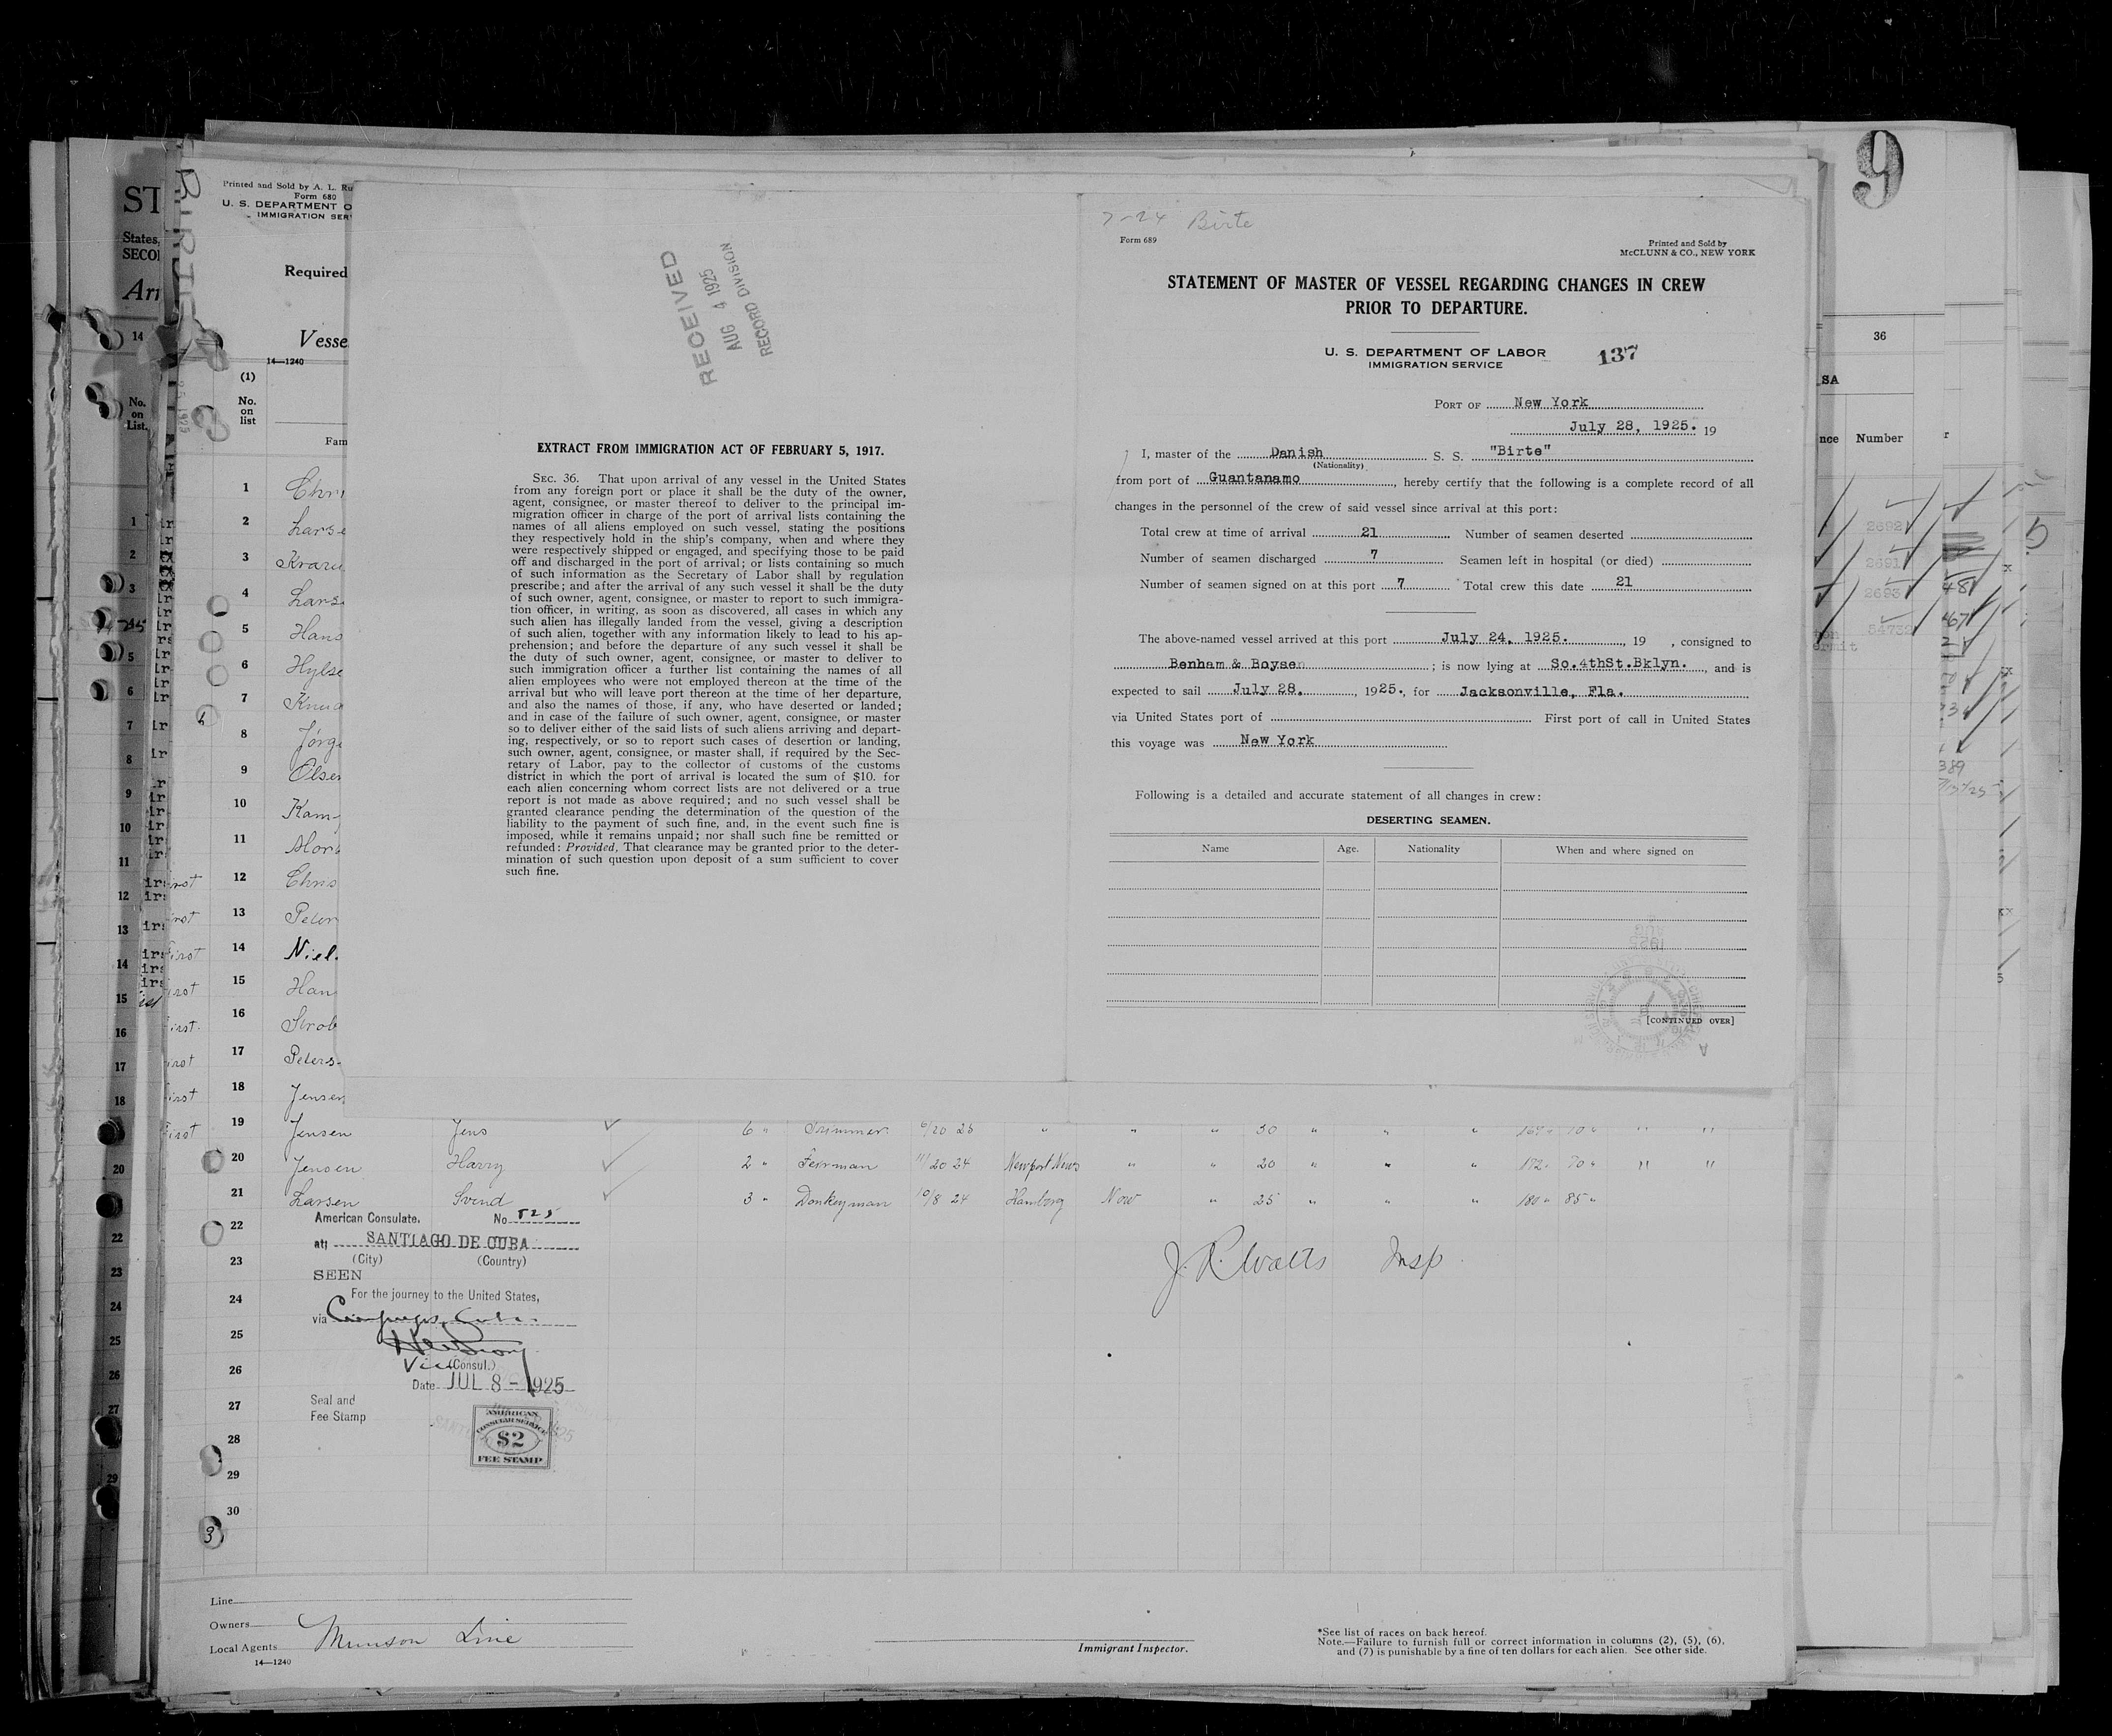 7-24 Birte
Form 689
Printed and Sold by
McCLUNN & CO., NEW YORK
STATEMENT OF MASTER OF VESSEL REGARDING CHANGES IN CREW
PRIOR TO DEPARTURE.
U. S. DEPARTMENT OF LABOR
IMMIGRATION SERVICE
137
PORT OF New York
July 28, 1925. 19
I, master of the Danish S. S. "Birte"
(Nationality)
from port of Guantanamo, hereby certify that the following is a complete record of all
changes in the personnel of the crew of said vessel since arrival at this port:
Total crew at time of arrival 21 Number of seamen deserted
Number of seamen discharged 7 Seamen left in hospital (or died)
Number of seamen signed on at this port 7 Total crew this date 21
The above-named vessel arrived at this port July 24, 1925., 19 , consigned to
Benham & Boysen ; is now lying at So.4thSt.Bklyn., and is
expected to sail July 28, , 1925. for Jacksonville, Fla.
via United States port of First port of call in United States
this voyage was New York
Following is a detailed and accurate statement of all changes in crew:
DESERTING SEAMEN.
Name Age. Nationality When and where signed on
[CONTINUED OVER]
RECEIVED
AUG 4 1925
RECORD DIVISION
EXTRACT FROM IMMIGRATION ACT OF FEBRUARY 5, 1917.
SEC. 36. That upon arrival of any vessel in the United States
from any foreign port or place it shall be the duty of the owner,
agent, consignee, or master thereof to deliver to the principal im-
migration officer in charge of the port of arrival lists containing the
names of all aliens employed on such vessel, stating the positions
they respectively hold in the ship's company, when and where they
were respectively shipped or engaged, and specifying those to be paid
off and discharged in the port of arrival; or lists containing so much
of such information as the Secretary of Labor shall by regulation
prescribe; and after the arrival of any such vessel it shall be the duty
of such owner, agent, consignee, or master to report to such immigra-
tion officer, in writing, as soon as discovered, all cases in which any
such alien has illegally landed from the vessel, giving a description
of such alien, together with any information likely to lead to his ap-
prehension; and before the departure of any such vessel it shall be
the duty of such owner, agent, consignee, or master to deliver to
such immigration officer a further list containing the names of all
alien employees who were not employed thereon at the time of the
arrival but who will leave port thereon at the time of her departure,
and also the names of those, if any, who have deserted or landed;
and in case of the failure of such owner, agent, consignee, or master
so to deliver either of the said lists of such aliens arriving and depart-
ing, respectively, or so to report such cases of desertion or landing,
such owner, agent, consignee, or master shall, if required by the Sec-
retary of Labor, pay to the collector of customs of the customs
district in which the port of arrival is located the sum of $10. for
each alien concerning whom correct lists are not delivered or a true
report is not made as above required; and no such vessel shall be
granted clearance pending the determination of the question of the
liability to the payment of such fine, and, in the event such fine is
imposed, while it remains unpaid; nor shall such fine be remitted or
refunded: Provided, That clearance may be granted prior to the deter-
mination of such question upon deposit of a sum sufficient to cover
such fine.
Printed and Sold by A. L. Ru
Form 680
U. S. DEPARTMENT O
IMMIGRATION SER
Required
Vesse
14—1240
(1)
No.
on
list
Fam
1 Chri
2 Larse
3
4 Lars
5 Hans
6
7 Knud
8 Jörge
9 Olsen
10 Kam
11
12 Chris
13 Peter
14 Niel
15 Han
16
17 Peters
18 Jensen
19 Jensen Jens 6 " Trimmer 6/20 25 " " " 30 " " "
20 Jensen Harry 2 " Feirman 11/20 24 Newport News " " 20 " " " 172 " 70 " " "
21 Larsen Svend 3 " Donkeyman 10/8 24 Hamborg Now " 25 " " " 180 " 85 "
22
23
24
25
26
27
28
29
30
American Consulate. No 525
at; SANTIAGO DE CUBA
(City) (Country)
SEEN
For the journey to the United States,
via
Vice (Consul.)
Date JUL 8 - 1925
Seal and
Fee Stamp
AMERICAN
CONSULAR SERVICE
$2
FEE STAMP
J. R. Watts Insp
Line
Owners
Local Agents Munson Line
14—1240
Immigrant Inspector.
*See list of races on back hereof.
Note.—Failure to furnish full or correct information in columns (2), (5), (6),
and (7) is punishable by a fine of ten dollars for each alien. See other side.
ST
States,
SECO
Arr
14
No.
on
List.
9
36
SA
nce Number
2692
2691
2693
54732